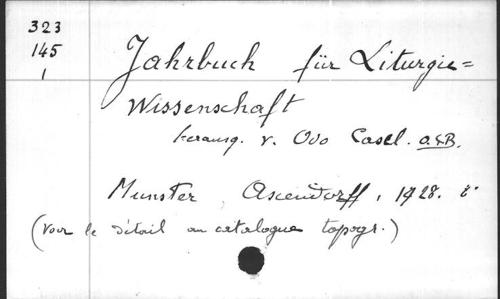 323
145
1
Jahrbuch für Liturgie=
Wissenschaft
herausg. v. Odo Casel. O.S.B.
Munster, Ascendorff, 1928.
(voir le détail au catalogue topogr.)